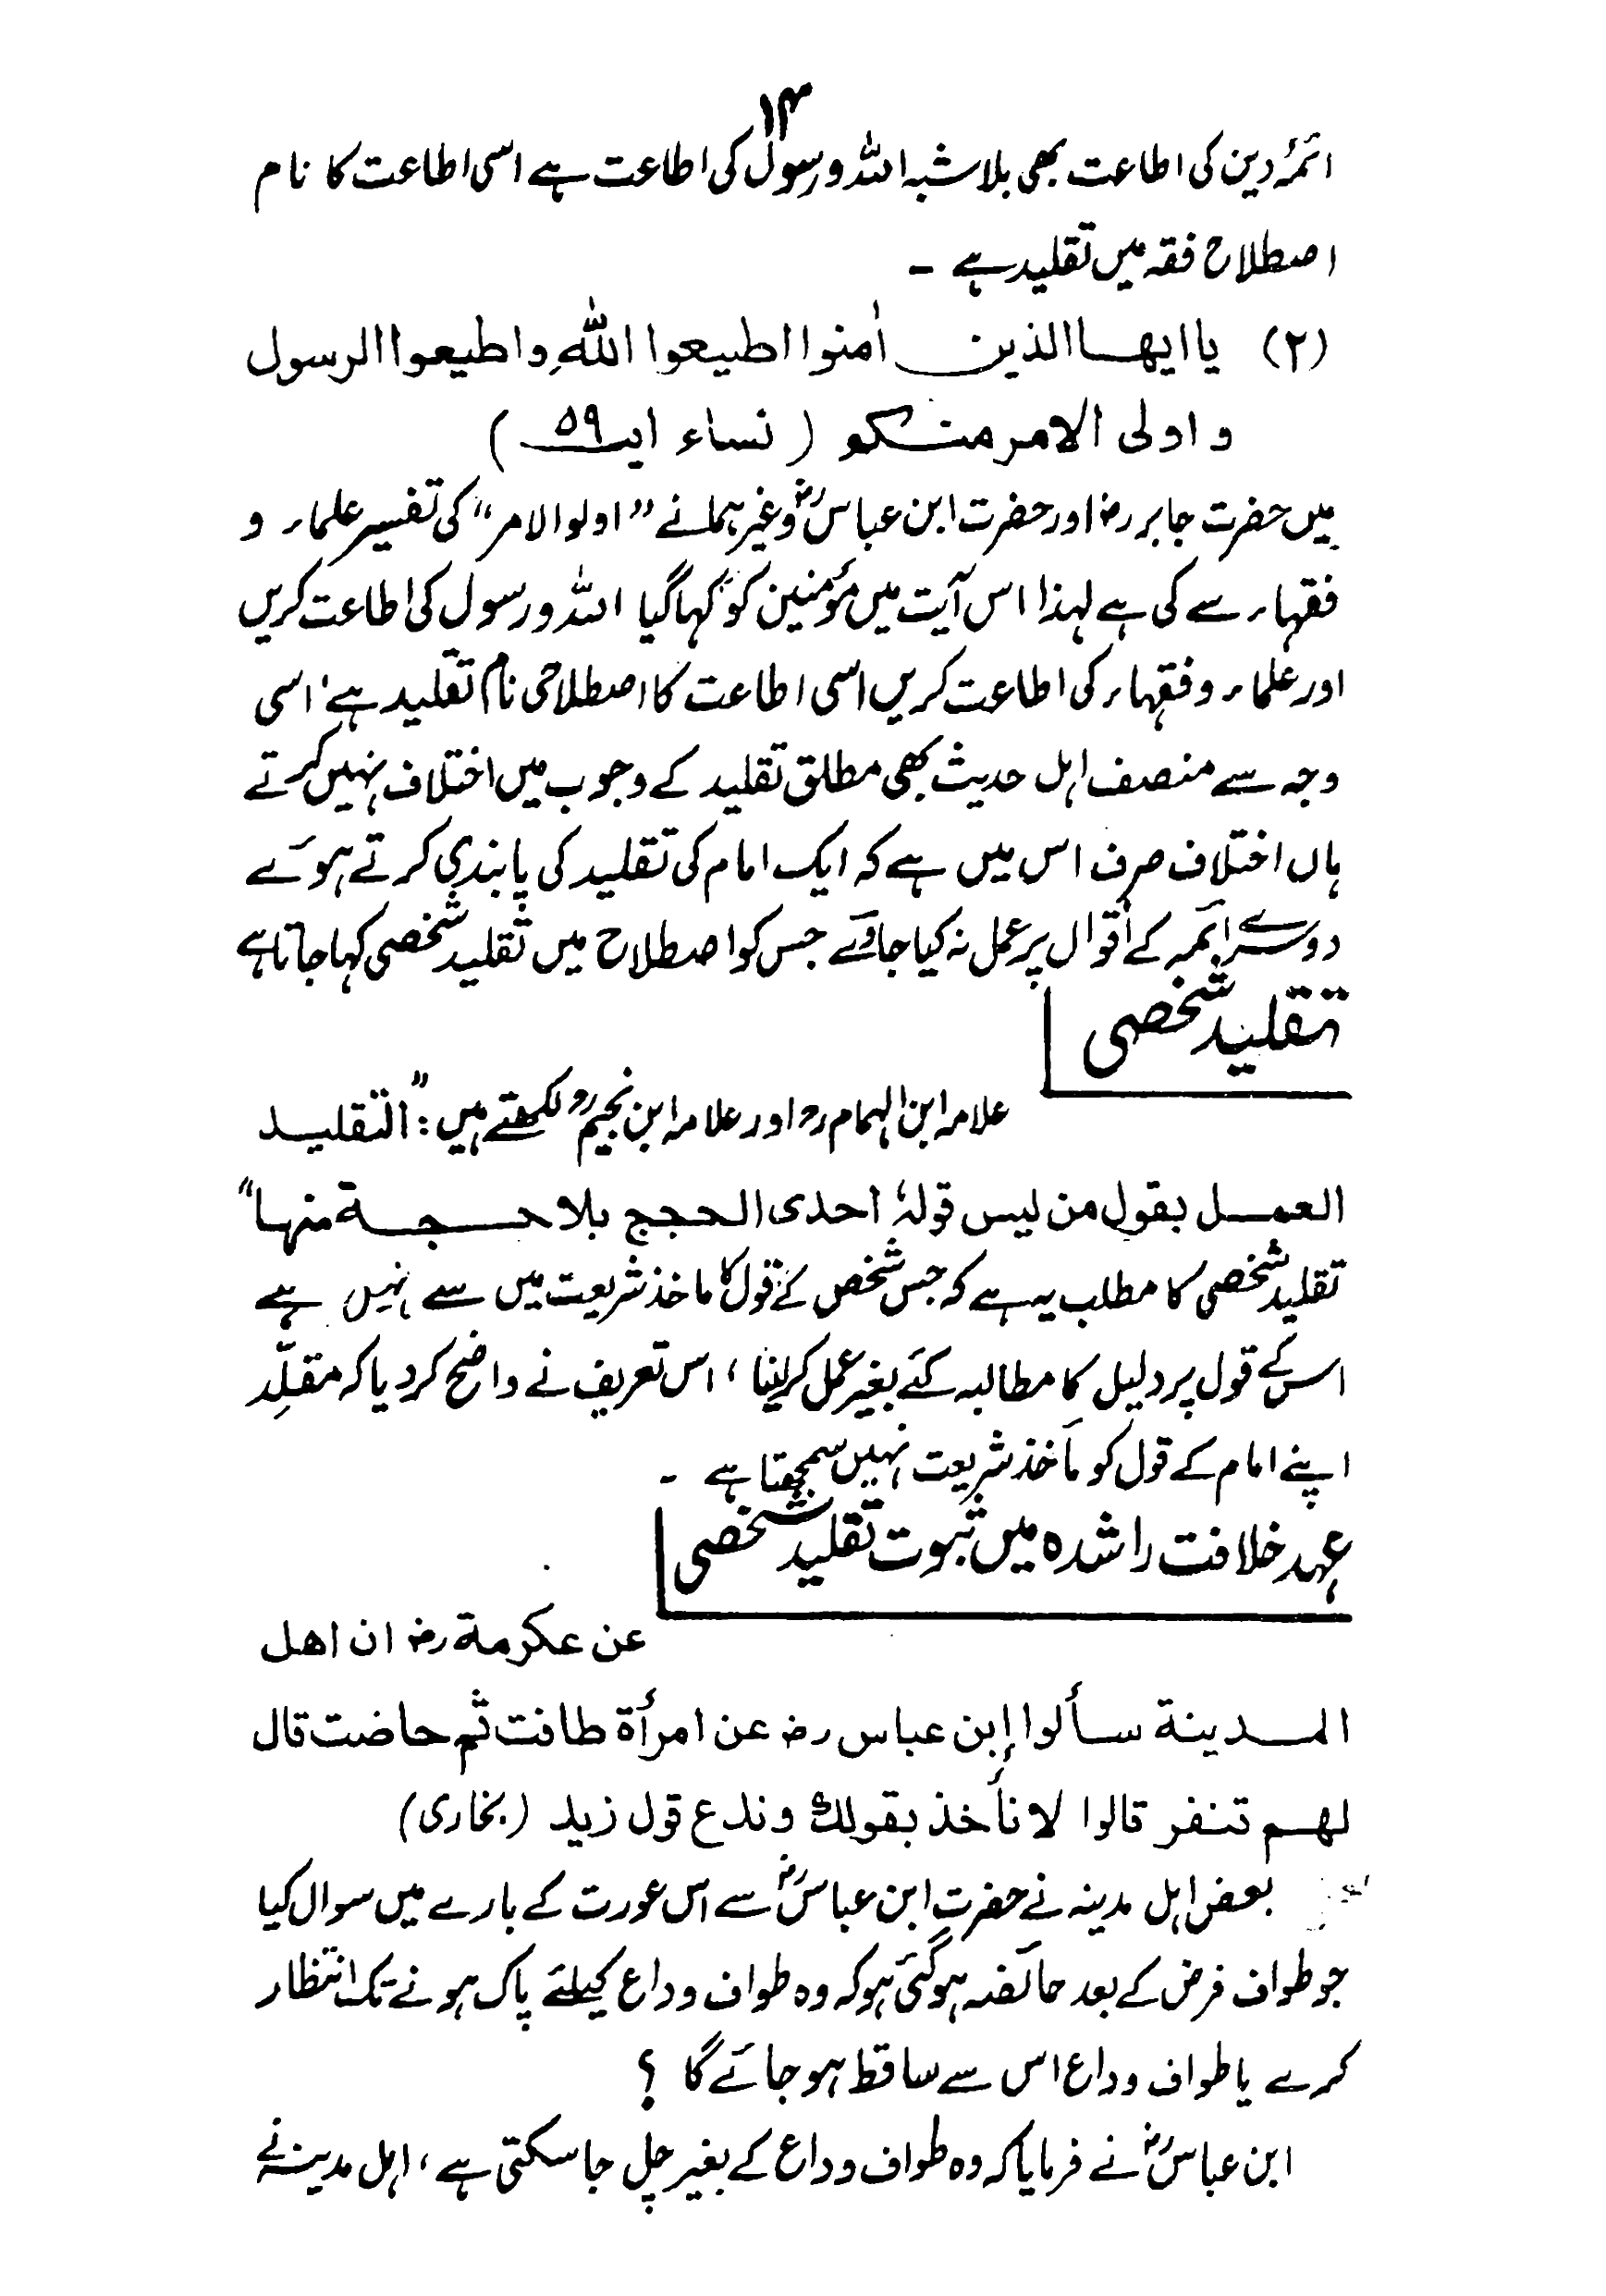 ۱۴
ائمۂ دین کی اطاعت بھی بلا شبہ اللہ و رسول کی اطاعت ہے اسی اطاعت کا نام
اصطلاح فقہ میں تقلید ہے ۔
(۲) یا ایھا الذین اٰمنوا اطیعوا اللہَ واطیعوا الرسول
و اولی الامر منکم ( نساء ایت ۵۹ )
میں حضرت جابر رض اور حضرت ابن عباسؓ وغیرہما نے ”اولو الامر“ کی تفسیر علماء و
فقہاء سے کی ہے لہذا اس آیت میں مؤمنین کو کہا گیا اللہ و رسول کی اطاعت کریں
اور علماء و فقہاء کی اطاعت کریں اسی اطاعت کا اصطلاحی نام تقلید ہے، اسی
وجہ سے منصف اہل حدیث بھی مطلق تقلید کے وجوب میں اختلاف نہیں کرتے
ہاں اختلاف صرف اس میں ہے کہ ایک امام کی تقلید کی پابندی کرتے ہوئے
دوسرے ائمہ کے اقوال پر عمل نہ کیا جاوے جس کو اصطلاح میں تقلید شخصی کہا جاتا ہے
تقلید شخصی
علامہ ابن الہمام رح اور علامہ ابن نجیمؒ لکھتے ہیں : ”التقلید
العمل بقول من لیس قولہٗ احدی الحجج بلا حجة منھا“
تقلید شخصی کا مطلب یہ ہے کہ جس شخص کے قول کا ماخذ شریعت میں سے نہیں ہے
اس کے قول پر دلیل کا مطالبہ کئے بغیر عمل کر لینا ، اس تعریف نے واضح کر دیا کہ مقلِّد
اپنے امام کے قول کو مأخذ شریعت نہیں سمجھتا ہے ۔
عہد خلافت راشدہ میں ثبوت تقلید شخصی
عن عکرمة رض ان اھل
المدینة سألوا إبن عباس رض عن امرأة طافت ثم حاضت قال
لھم تنفر قالوا لا نأخذ بقولك وندع قول زید (بخاری)
بعض اہل مدینہ نے حضرت ابن عباسؓ سے اس عورت کے بارے میں سوال کیا
جو طواف فرض کے بعد حائضہ ہوگئی ہو کہ وہ طواف وداع کیلئے پاک ہونے تک انتظار
کرے یا طواف وداع اس سے ساقط ہو جائے گا ؟
ابن عباسؓ نے فرمایا کہ وہ طواف وداع کے بغیر چل جا سکتی ہے ، اہل مدینہ نے